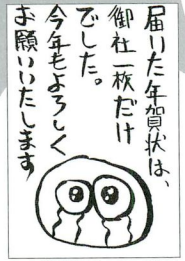 届いた年賀状は、
御社一枚だけ
でした。
今年もよろしく
お願いいたします